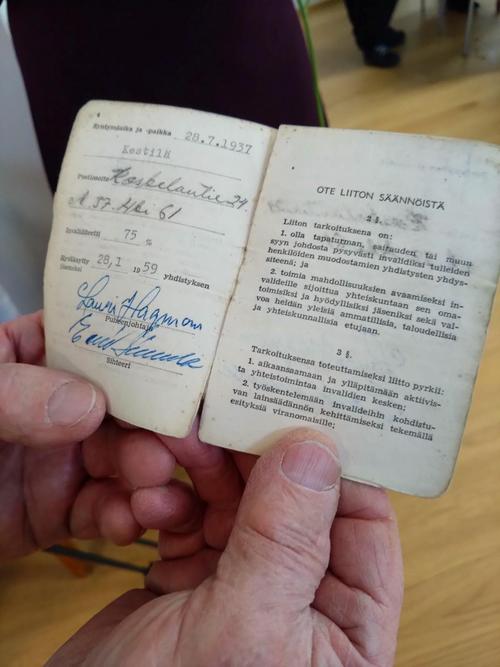 Syntymäaika ja -paikka 28.7.1937
Kestilä
Postiosoite Koskelantie 24.
A 57. Hki 61
Invaliditeetti 75 %
Hyväksytty 28,1 1959 yhdistyksen
jäseneksi
Lauri Hagman
Puheenjohtaja
Sihteeri
OTE LIITON SÄÄNNÖISTÄ
2 §.
Liiton tarkoituksena on:
1. olla tapaturman, sairauden tai muun
syyn johdosta pysyvästi invalidiksi tulleiden
henkilöiden muodostamien yhdistysten yhdys-
siteenä; ja
2. toimia mahdollisuuksien avaamiseksi in-
valideille sijoittua yhteiskuntaan sen oma-
toimisiksi ja hyödyllisiksi jäseniksi sekä val-
voa heidän yleisiä ammatillisia, taloudellisia
ja yhteiskunnallisia etujaan.
3 §.
Tarkoituksensa toteuttamiseksi liitto pyrkii:
1. aikaansaamaan ja ylläpitämään aktiivis-
ta yhteistoimintaa invalidien kesken;
2. työskentelemään invalideihin kohdistu-
van lainsäädännön kehittämiseksi tekemällä
esityksiä viranomaisille;